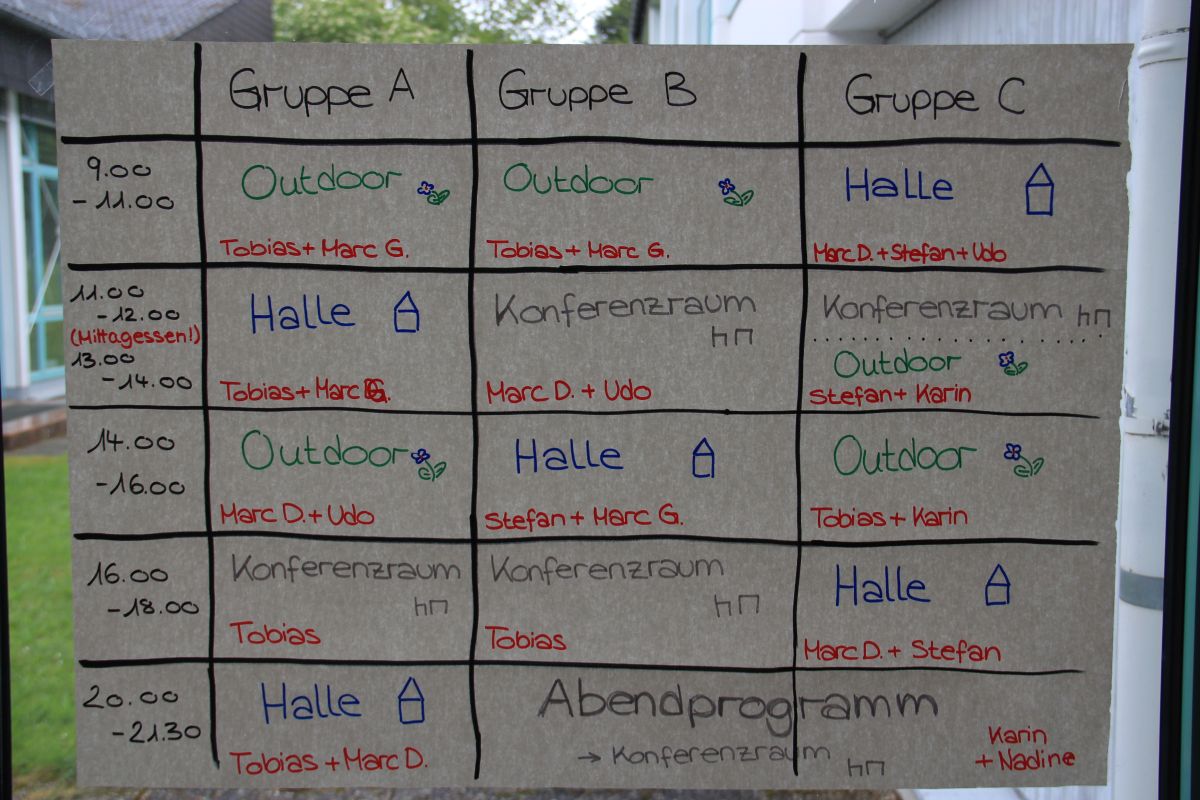 Gruppe A
Gruppe B
Gruppe C
9.00
- 11.00
Outdoor
Tobias + Marc G.
Outdoor
Tobias + Marc G.
Halle
Marc D. + Stefan + Udo
11.00
- 12.00
(Mittagessen!)
13.00
- 14.00
Halle
Tobias + Marc G.
Konferenzraum
Marc D. + Udo
Konferenzraum
Outdoor
Stefan + Karin
14.00
- 16.00
Outdoor
Marc D. + Udo
Halle
Stefan + Marc G.
Outdoor
Tobias + Karin
16.00
- 18.00
Konferenzraum
Tobias
Konferenzraum
Tobias
Halle
Marc D. + Stefan
20.00
- 21.30
Halle
Tobias + Marc D.
Abendprogramm
→ Konferenzraum
Karin
+ Nadine